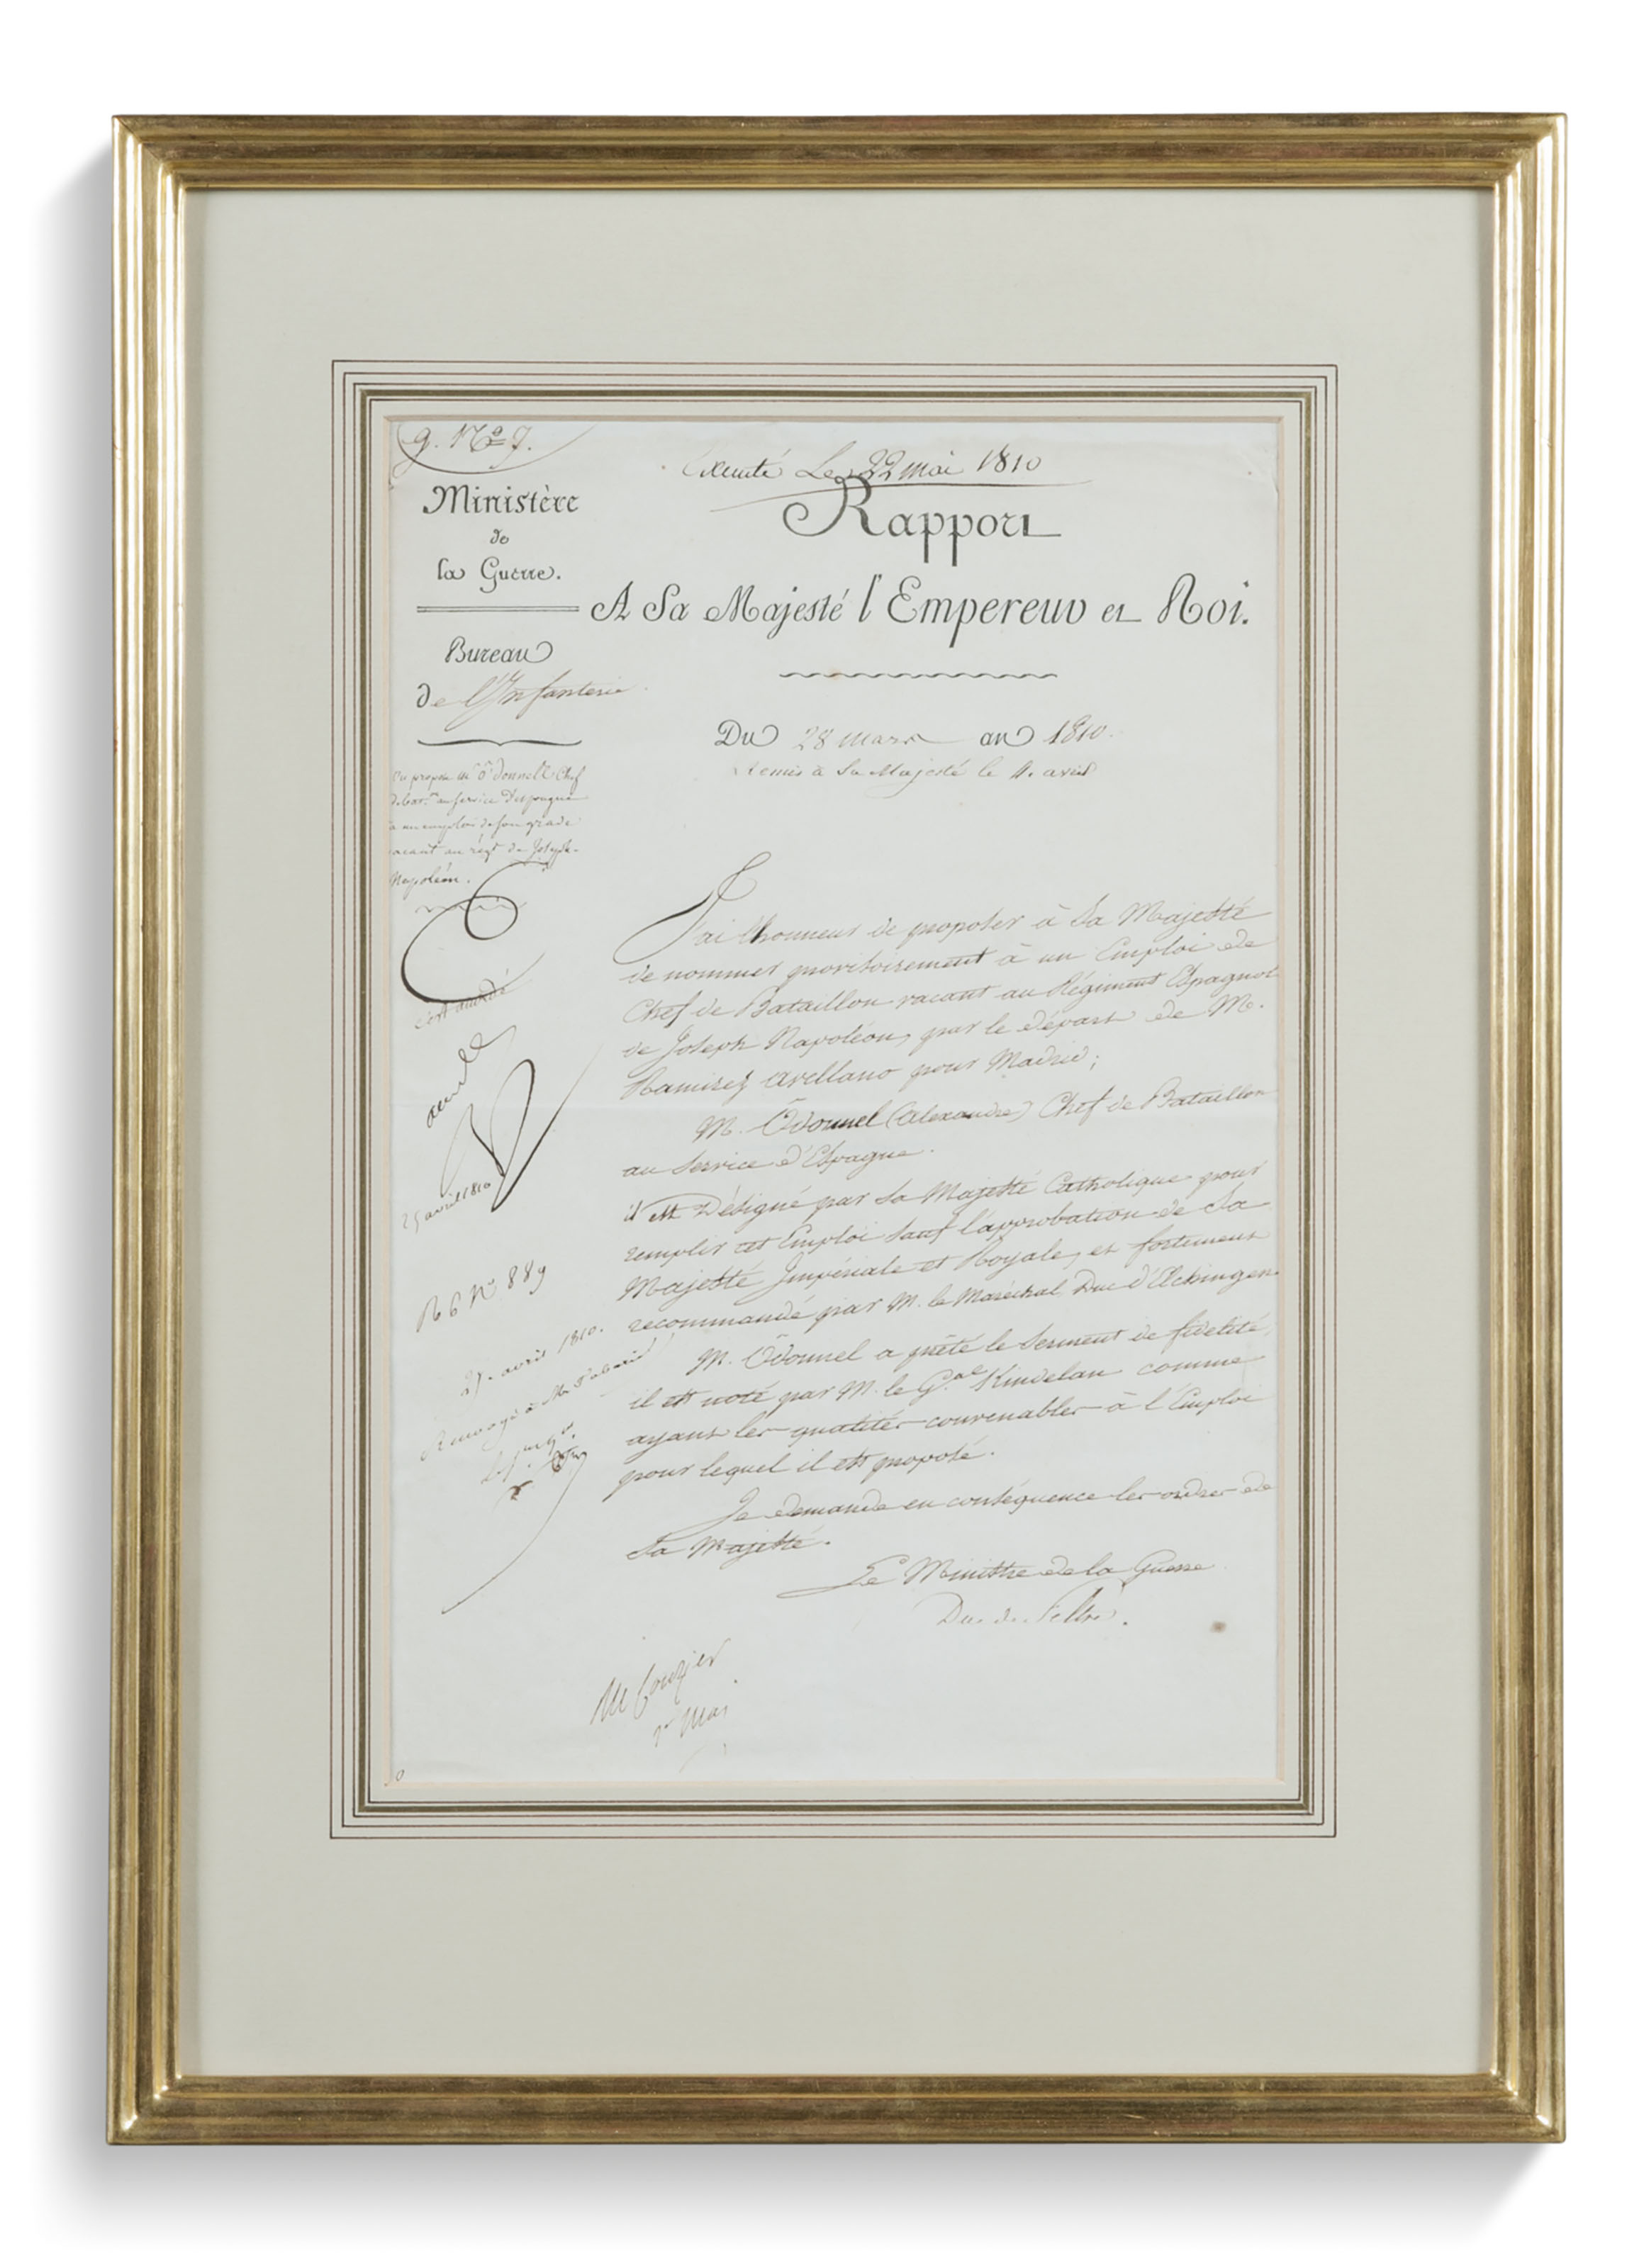 Executé Le 22 mai 1810
Ministère
de
la Guerre.
Rapport
A Sa Majesté l'Empereur et Roi.
Bureau
de l'Infanterie
Du 28 mars an 1810.
Remis à Sa Majesté le 11. avril
On propose Mr. O'donnell Chef
de bat.on au service d'Espagne
à un emploi de son grade
vacant au régt de Joseph-
Napoléon.
J'ai l'honneur de proposer à Sa Majesté
de nommer provisoirement à un Emploi de
Chef de Bataillon vacant au Régiment Espagnol
de Joseph Napoléon, par le départ de M.
Ramirez Arellano pour Madrid;
M. Ôdonnel (Alexandre) Chef de Bataillon
au Service d'Espagne.
il est Désigné par Sa Majesté Catholique pour
remplir cet Emploi sauf l'approbation de Sa
Majesté Impériale et Royale, et fortement
recommandé par M. le Maréchal Duc d'Elchingen.
M. Ôdonnel a prêté le Serment de fidélité,
il est noté par M. le G.al Kindelan comme
ayant les qualités convenables à l'Emploi
pour lequel il est proposé.
Je demande en conséquence les ordres de
Sa Majesté.
Le Ministre de la Guerre
Duc de Feltre.
25 avril 1810
No. 889
27. avril 1810.
Renvoyé à M.
M
Mai